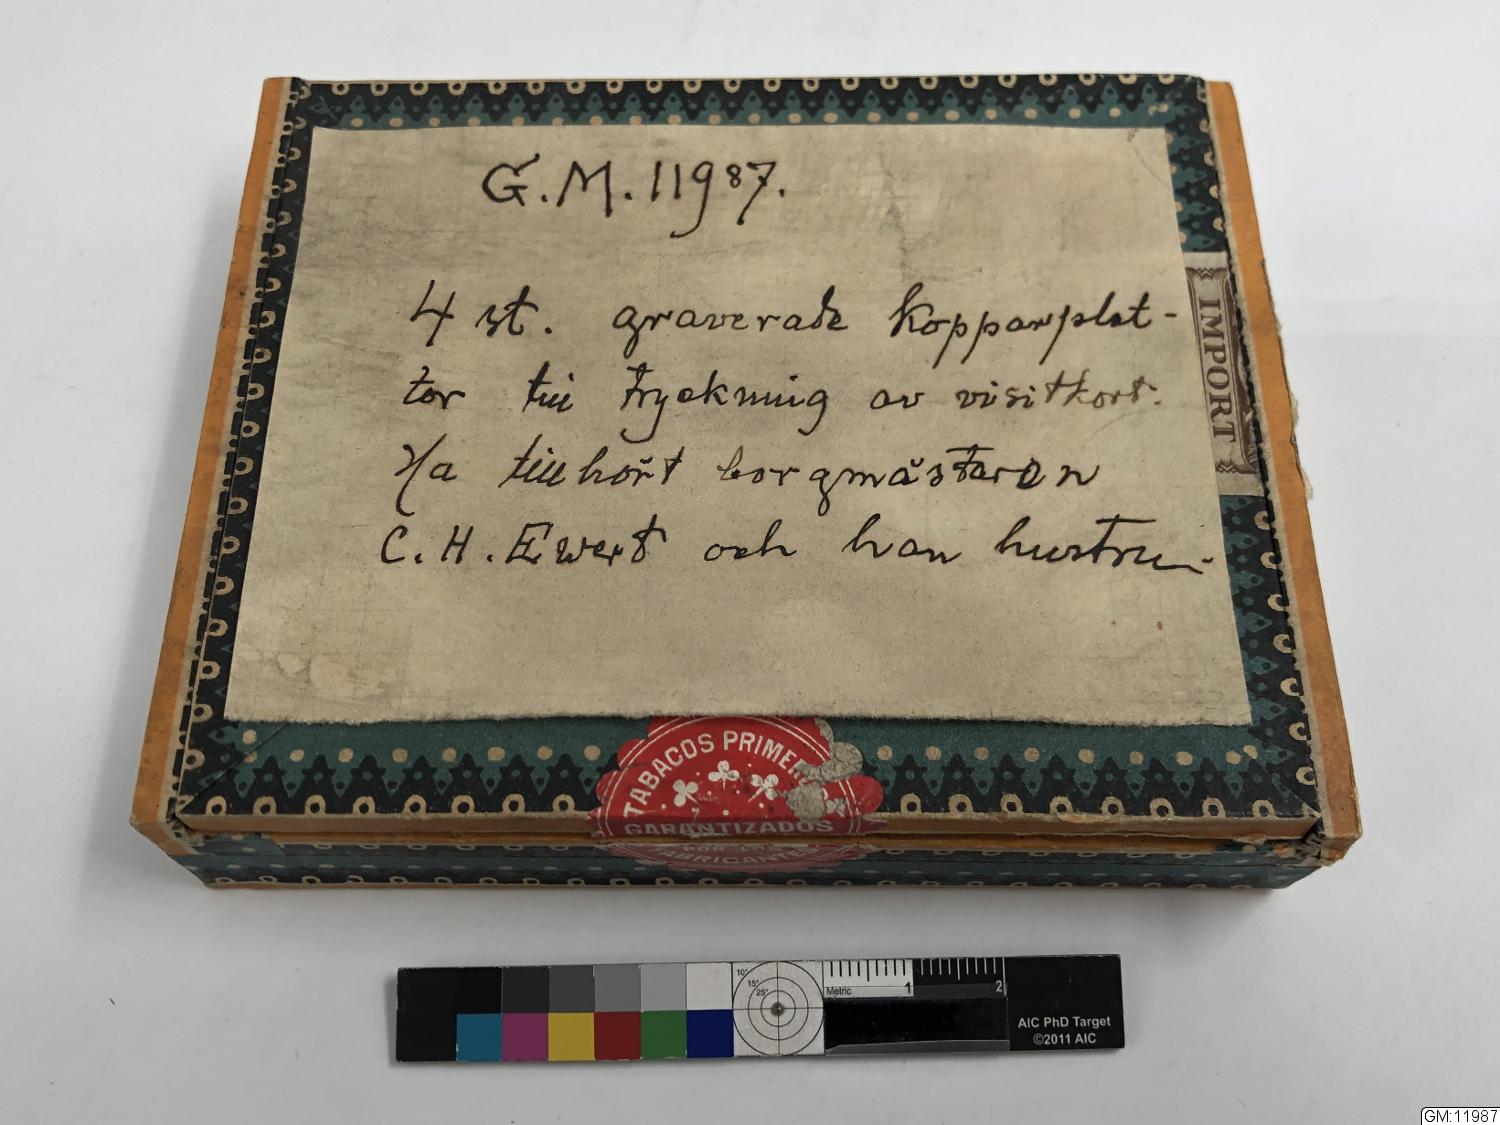 G.M.11987.
4 st. graverade kopparplat-
tor till tryckning av visitkort.
Ha tillhört borgmästaren
C.H. Ewert och han hustru.
IMPORT
TABACOS PRIMER
GARANTIZADOS
POR LOS
FABRICANTES
10°
15°
25°
Metric 1 2
AIC PhD Target
©2011 AIC
GM:11987